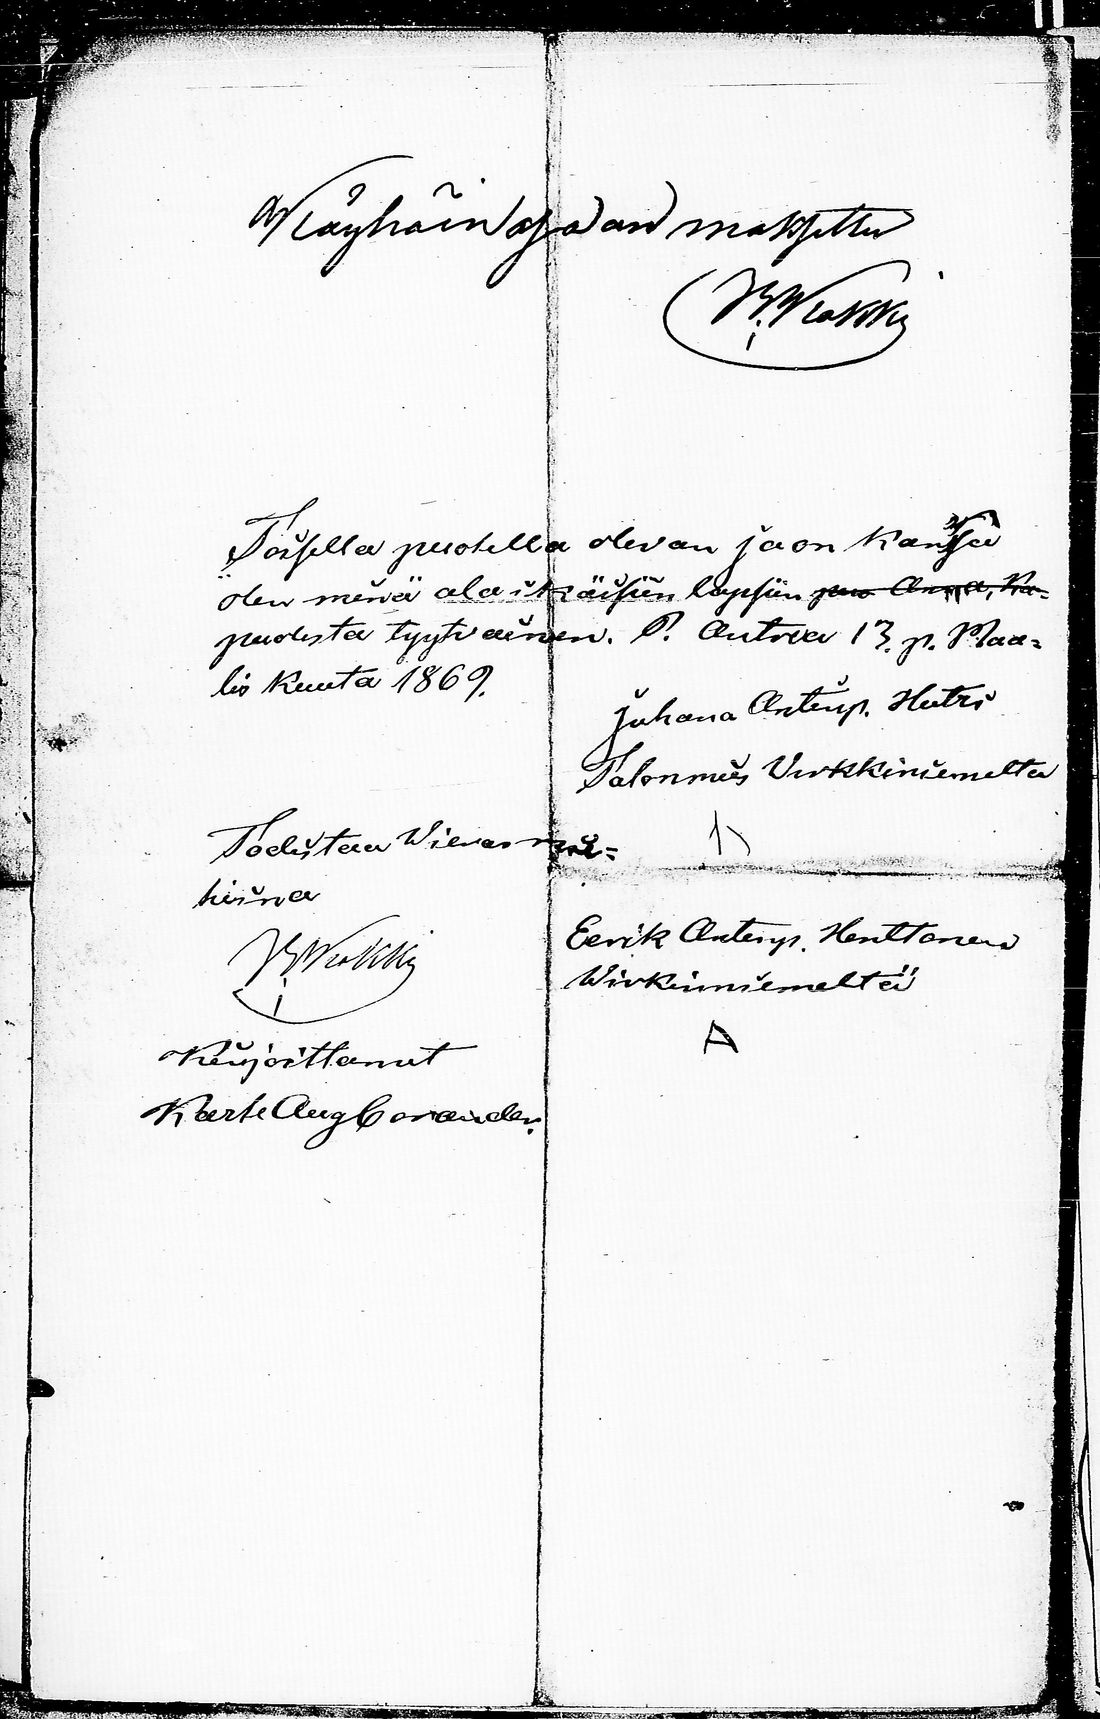 Wäyhäin osa on maksettu
Toisella puolella olevan jaon kansa
olen minä ala ikäisiin lapsiin
puolesta tyytyväinen. P. Antrea 13. p. Maa=
lis kuuta 1869.
Juhana Antinp. Hutri
Talonmies Virkkiniemeltä
Todistaa Wieras mie=
hinä
Eerik Antinp. Henttonen
Wirkinniemeltä
A
Kirjoittanut
Karle Aug Corander.